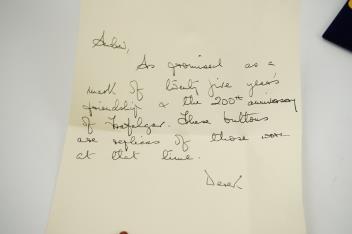 As promised as a
mark of twenty five year's
friendship & the 200th anniversary
of Trafalgar. These buttons
are replicas of those worn
at that time.
Derek